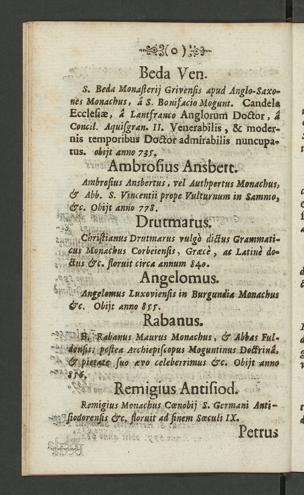 (0)
Beda Ven.
S. Beda Monasterij Grivensis apud Anglo-Saxo-
nes Monachus, á S. Bonifacio Mogunt. Candela
Ecclesiæ, á Lantfranco Anglorum Doctor, á
Concil. Aquisgran. II. Venerabilis, & moder-
nis temporibus Doctor admirabilis nuncupa-
tus. obijt anno 735.
Ambrosius Ansbert.
Ambrosius Ansbertus, vel Authpertus Monachus,
& Abb. S. Vincentii prope Vulturnum in Samnio,
&c. Obijt anno 778.
Drutmarus.
Christianus Drutmarus vulgò dictus Grammati-
cus Monachus Corbeiensis, Græcè, ac Latinè do-
ctus &c. floruit circa annum 840.
Angelomus.
Angelomus Luxoviensis in Burgundia Monachus
&c. Obijt anno 855.
Rabanus.
B. Rabanus Maurus Monachus, & Abbas Ful-
densis; postea Archiepiscopus Moguntinus Doctrinâ,
& pietate suo ævo celeberrimus &c. Obijt anno
856.
Remigius Antisiod.
Remigius Monachus Cœnobij S. Germani Anti-
siodorensis &c, floruit ad finem Sæculi IX.
Petrus